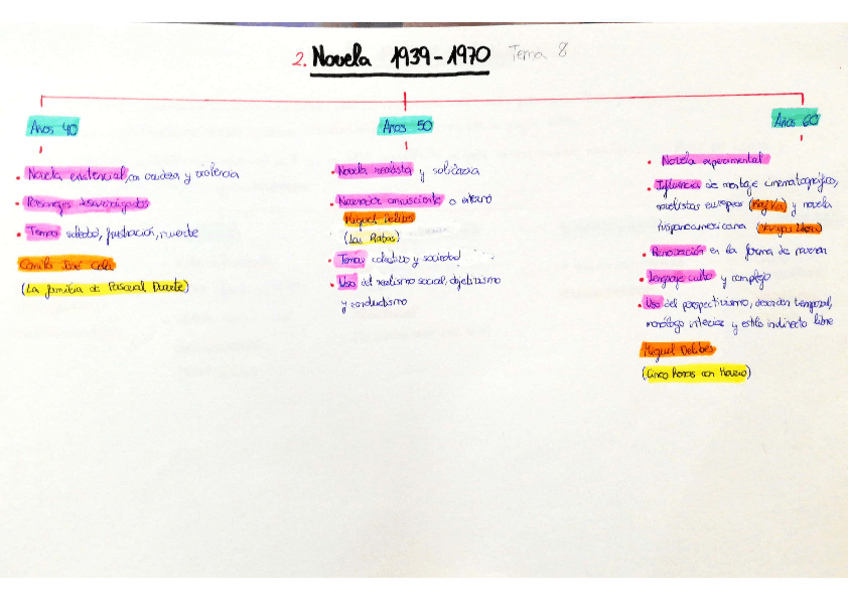 2. Novela 1939-1970 Tema 8
Años 40
• Novela existencial, con crudeza y violencia
• Personajes desarraigados
• Temas soledad, frustración, muerte
Camilo José Cela
(La familia de Pascual Duarte)
Años 50
• Novela realista y solidaria
• Narrador omnisciente o externo
Miguel Delibes
(Las Ratas)
• Temas colectivo y sociedad
• Uso del realismo social, objetivismo
y conductismo
Años 60
• Novela experimental
• Influencia de montaje cinematográfico,
novelistas europeos (Kafka) y novela
hispanoamericana (Vargas Llosa)
• Renovación en la forma de narrar
• Lenguaje culto y complejo
• Uso del perspectivismo, desorden temporal,
monólogo interior y estilo indirecto libre
Miguel Delibes
(Cinco horas con Mario)